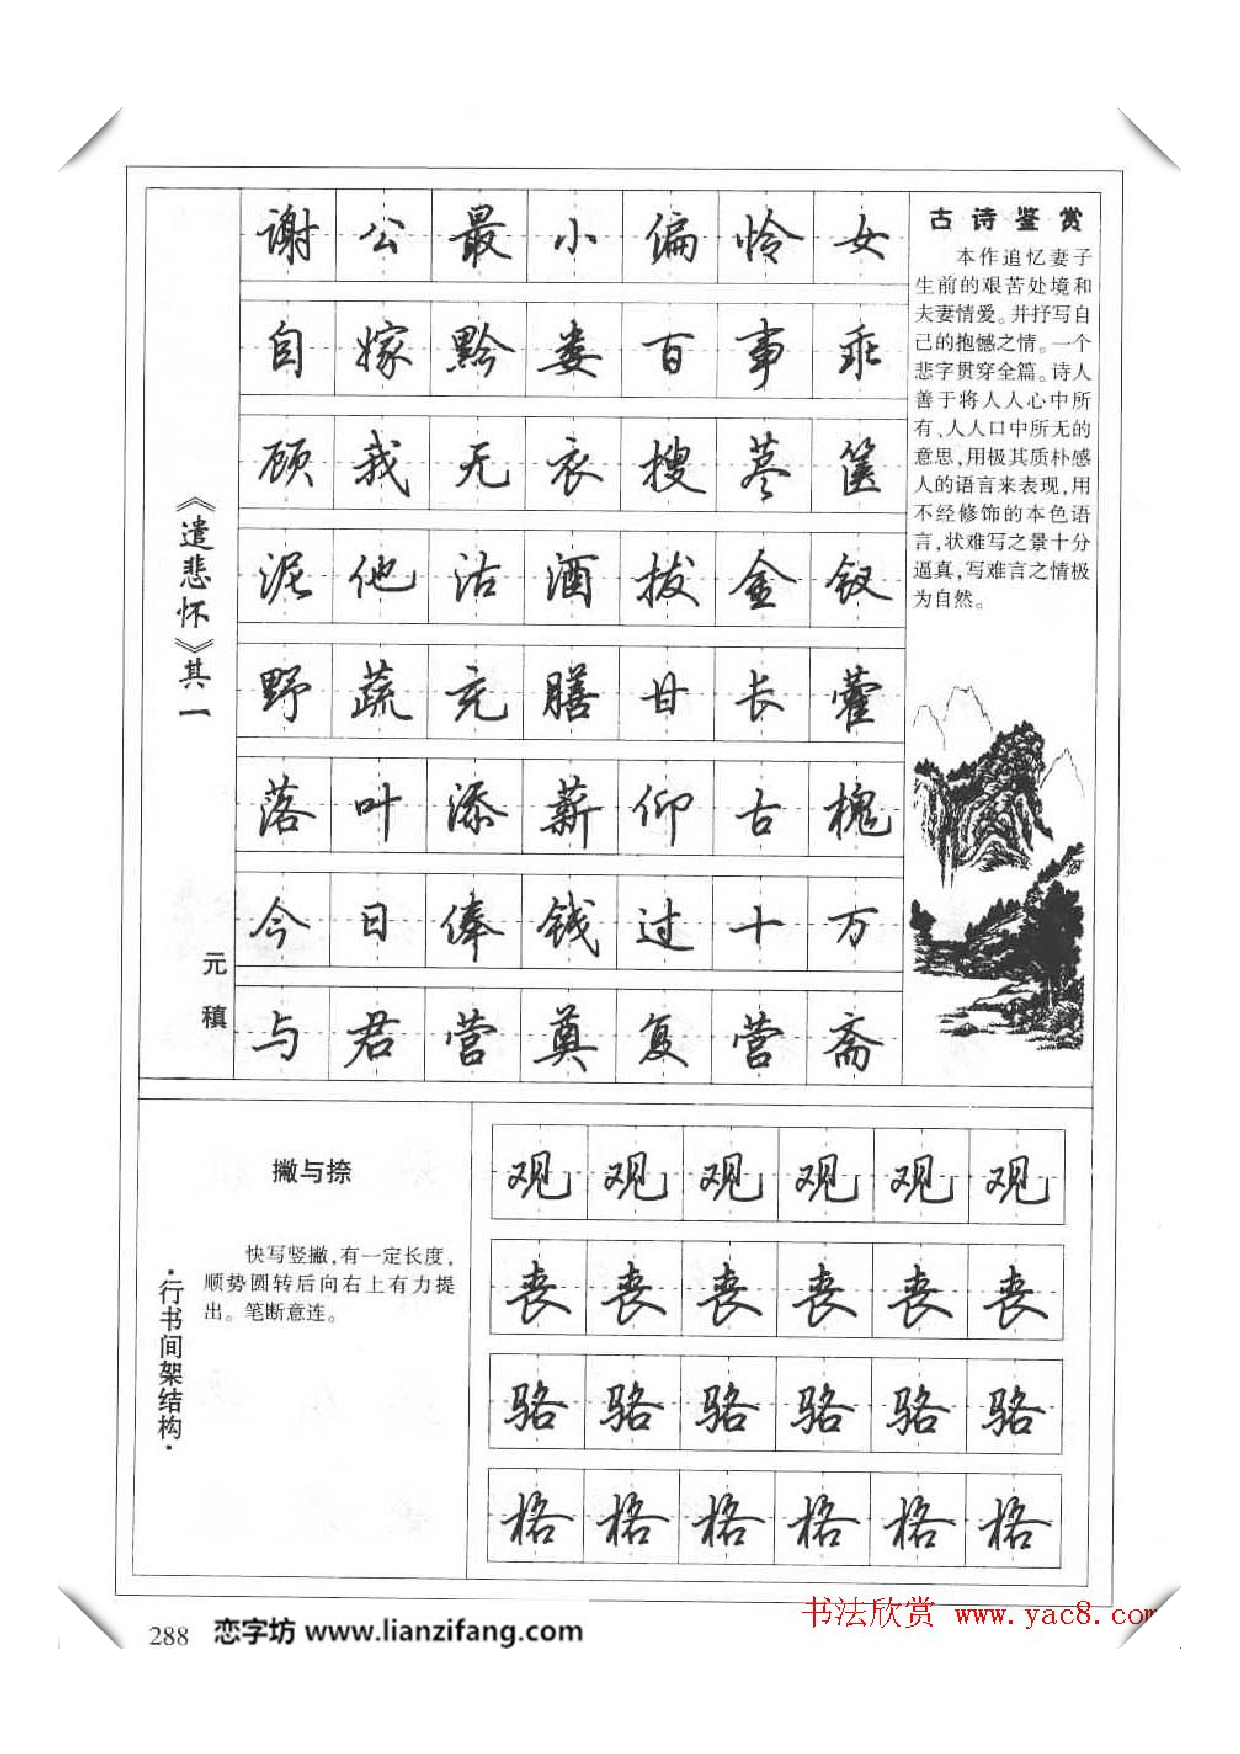 《遣悲怀》其一
元稹
谢公最小偏怜女
自嫁黔娄百事乖
顾我无衣搜荩箧
泥他沽酒拔金钗
野蔬充膳甘长藿
落叶添薪仰古槐
今日俸钱过十万
与君营奠复营斋
古诗鉴赏
本作追忆妻子
生前的艰苦处境和
夫妻情爱。并抒写自
己的抱憾之情。一个
悲字贯穿全篇。诗人
善于将人人心中所
有、人人口中所无的
意思,用极其质朴感
人的语言来表现,用
不经修饰的本色语
言,状难写之景十分
逼真,写难言之情极
为自然。
·行书间架结构·
撇与捺
快写竖撇,有一定长度,
顺势圆转后向右上有力提
出。笔断意连。
观观观观观观
丧丧丧丧丧丧
骆骆骆骆骆骆
格格格格格格
288 恋字坊 www.lianzifang.com
书法欣赏 www.yac8.com